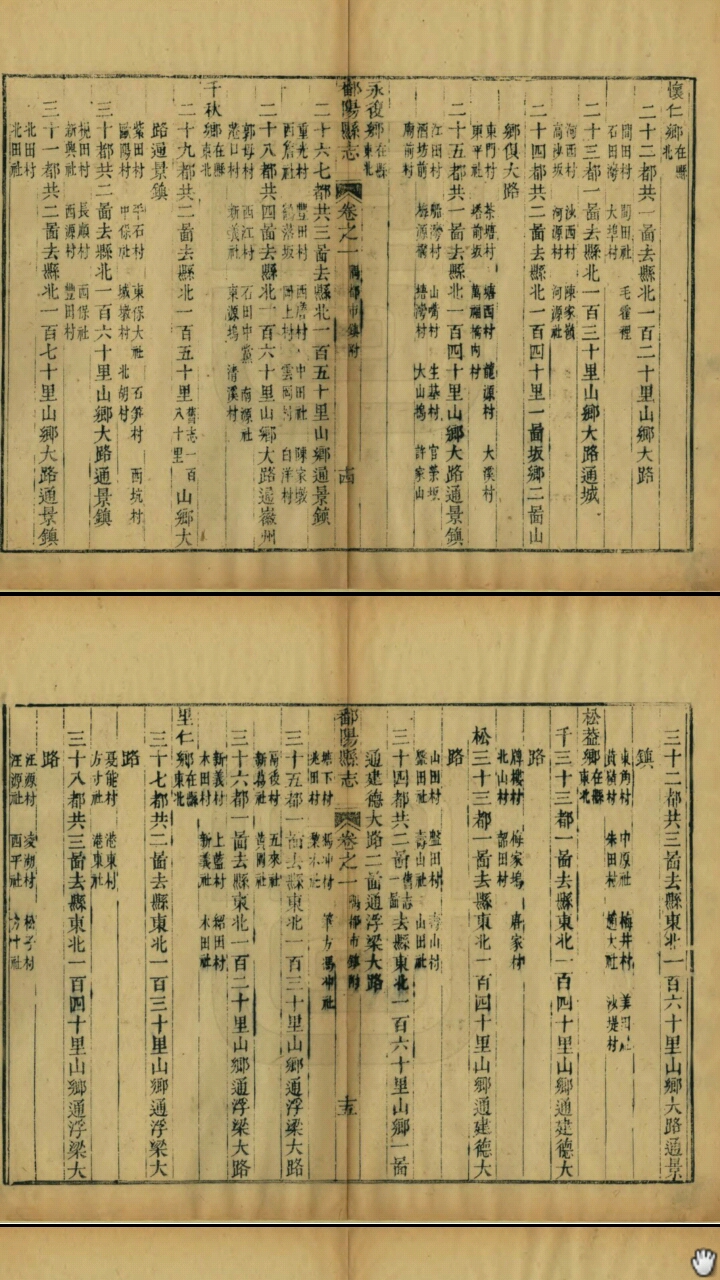 懷仁鄉在縣北
二十二都共一啚去縣北一百二十里山鄉大路
間田村 間田社 毛家程
石田灣 大埠村
二十三都一啚去縣北一百三十里山鄉大路通城
河西村 汝西村 陳家嶺
高沙坂 河源村 河源社
二十四都共二啚去縣北一百四十里一啚坂鄉二啚山
鄉俱大路
東門村 茶塘村 塘西村 龍源村 大溪村
東平社 塔前坂 萬福橋內村
二十五都共一啚去縣北一百四十里山鄉大路通景鎮
江田村 船灣村 山嘴村 生基村 官榮坂
酒坊前 梅源家 塘灣村 大山塢 許家山
廟前村
永復鄉在縣東北
鄱陽縣志 卷之一 鄉都市鎮附 十四
二十六七都共三啚去縣北一百五十里山鄉通景鎮
重光村 豐田村 西唐村 中田社 陳家墩
陽上村 雲岡村 白洋村
二十八都共四啚去縣北一百六十里山鄉大路通徽州
郭母村 西江村 石田中黨 南源社
港口村 新義社 東源塢 清溪村
千秋鄉在縣東北
二十九都共二啚去縣北一百五十里舊志一百八十里山鄉大
路通景鎮
柴田村 浮石村 東保大社 石笋村 西坑村
歐陽村 中保社 城墩村 北胡村
三十都共二啚去縣北一百六十里山鄉大路通景鎮
祝田村 長順村 西保社
新興社 西源村 豐田村
三十一都共二啚去縣北一百七十里山鄉大路通景鎮
北田村
北田社
三十二都共三啚去縣東北一百六十里山鄉大路通景
鎮
東角村 中原社 梅井村
黃嶺村 朱田村 沙堤村
松益鄉在縣東北
千三十三都一啚去縣東北一百四十里山鄉通建德大
路
牌樓村 梅家塢 唐家村
北山村 韶田村
松三十三都一啚去縣東北一百四十里山鄉通建德大
路
山田村 盤田村 壽山村
梨田社 壽山社 山田社
三十四都共二啚舊志一啚去縣東北一百六十里山鄉一啚
通建德大路二啚通浮梁大路
鄱陽縣志 卷之一 鄉都市鎮附 十五
桃田村
三十五都一啚去縣東北一百三十里山鄉通浮梁大路
南後村 五來社
三十六都一啚去縣東北一百二十里山鄉通浮梁大路
新義村 上藍村 祿田村
木田村 新義社 木田社
里仁鄉在縣東北
三十七都共二啚去縣東北一百三十里山鄉通浮梁大
路
港東村
方寸社 港東社
三十八都共三啚去縣東北一百四十里山鄉通浮梁大
路
汪源村 凌湖村 松子村
汪源社 西平社 方寸社